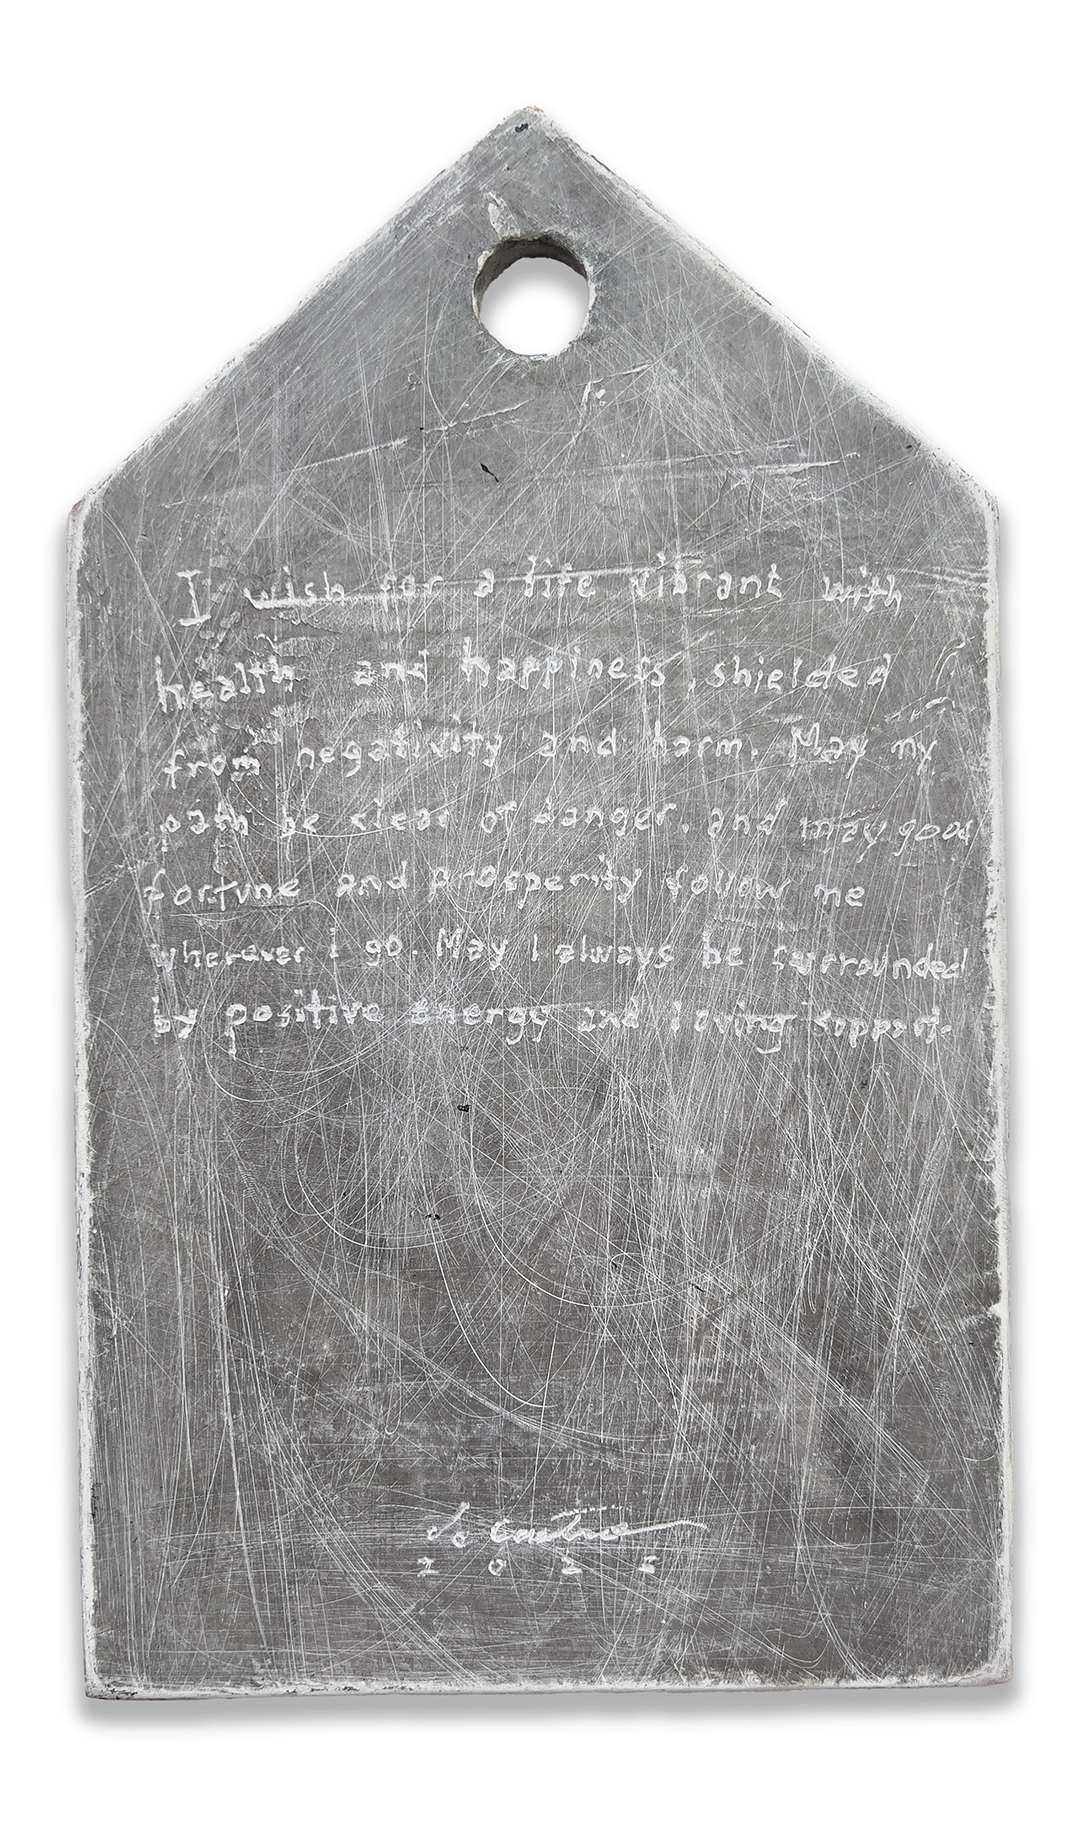 I wish for a life vibrant with
health and happiness, shielded
from negativity and harm. May my
path be clear of danger, and may good
fortune and prosperity follow me
wherever I go. May I always be surrounded
by positive energy and loving support.
de Castro
2025